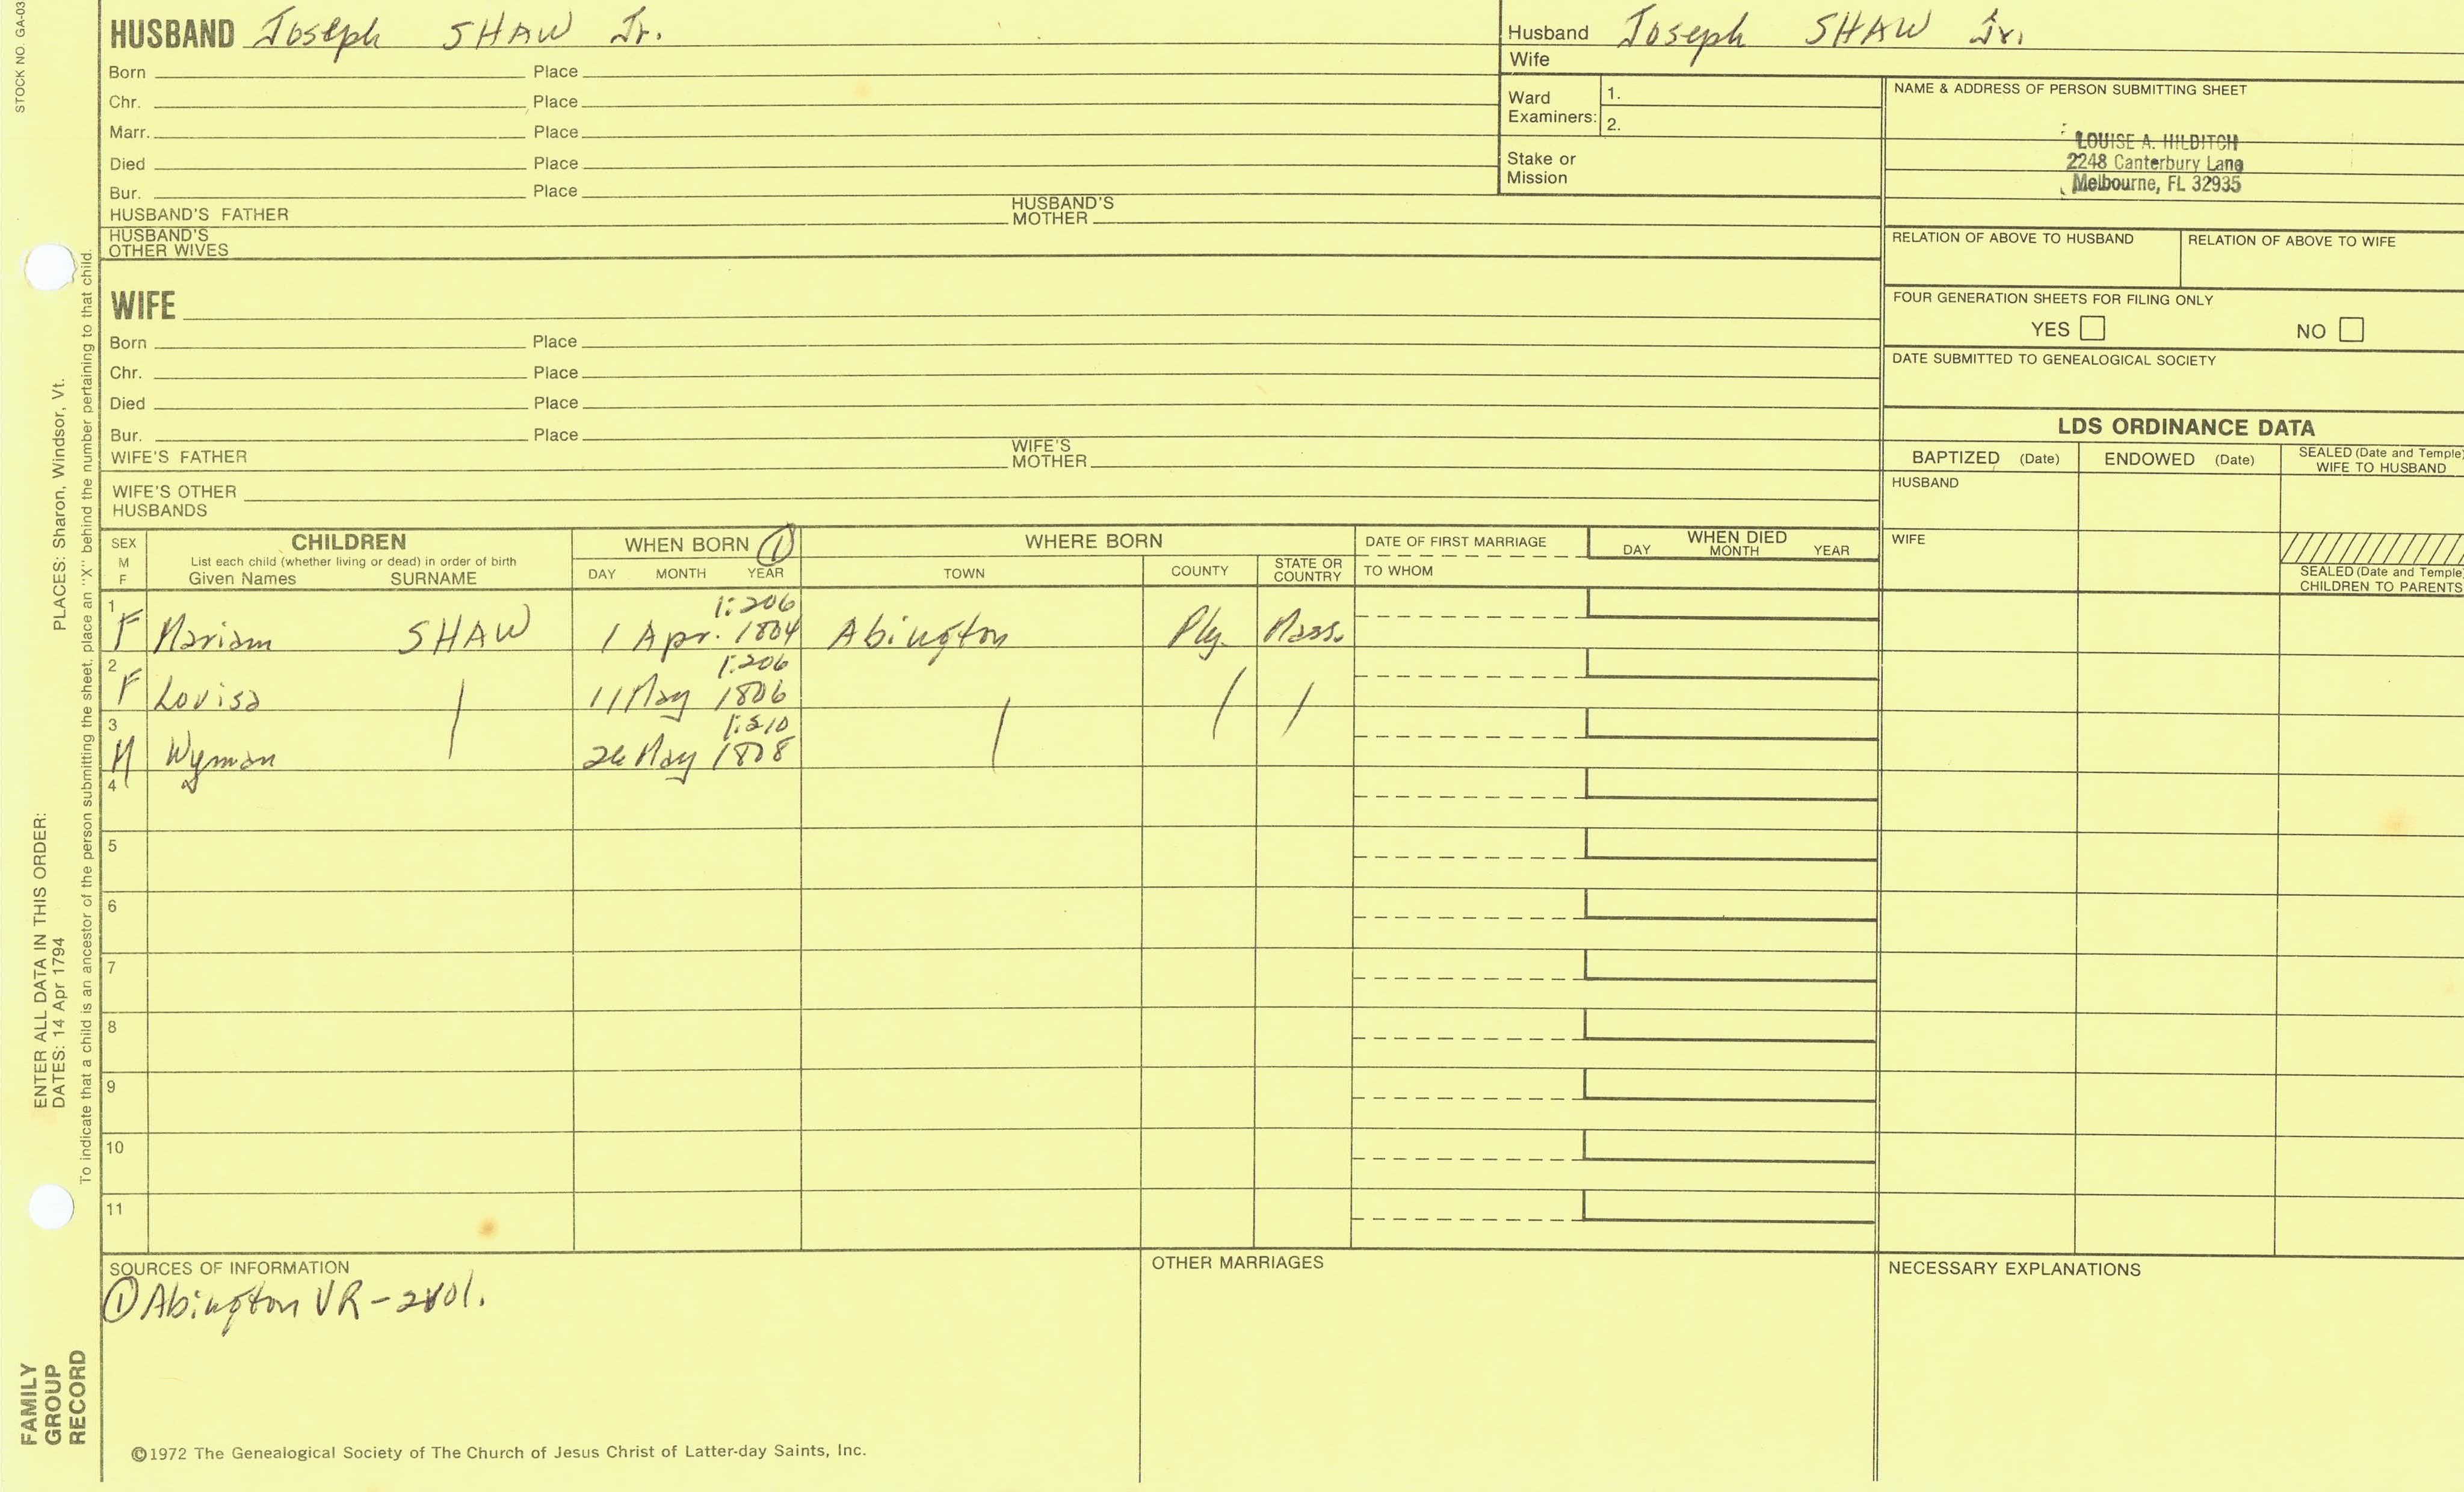 STOCK NO. GA-03
HUSBAND Joseph SHAW Jr.
Born Place
Chr. Place
Marr. Place
Died Place
Bur. Place
HUSBAND'S FATHER HUSBAND'S MOTHER
HUSBAND'S OTHER WIVES
Husband Joseph SHAW Jr.
Wife
Ward Examiners: 1.
2.
Stake or Mission
NAME & ADDRESS OF PERSON SUBMITTING SHEET
LOUISE A. HILDITCH
2248 Canterbury Lane
Melbourne, FL 32935
RELATION OF ABOVE TO HUSBAND RELATION OF ABOVE TO WIFE
FOUR GENERATION SHEETS FOR FILING ONLY
YES NO
DATE SUBMITTED TO GENEALOGICAL SOCIETY
WIFE
Born Place
Chr. Place
Died Place
Bur. Place
WIFE'S FATHER WIFE'S MOTHER
WIFE'S OTHER HUSBANDS
LDS ORDINANCE DATA
BAPTIZED (Date) ENDOWED (Date) SEALED (Date and Temple) WIFE TO HUSBAND
HUSBAND
WIFE
SEALED (Date and Temple) CHILDREN TO PARENTS
SEX M F
CHILDREN
List each child (whether living or dead) in order of birth
Given Names SURNAME
WHEN BORN ①
DAY MONTH YEAR
WHERE BORN
TOWN COUNTY STATE OR COUNTRY
DATE OF FIRST MARRIAGE
TO WHOM
WHEN DIED
DAY MONTH YEAR
1:206
1 F Mariam SHAW 1 Apr. 1804 Abington Ply. Mass.
1:206
2 F Lovisa 11 May 1806
1:210
3 M Wyman 26 May 1808
4
5
6
7
8
9
10
11
SOURCES OF INFORMATION
① Abington VR - 2vol.
OTHER MARRIAGES
NECESSARY EXPLANATIONS
©1972 The Genealogical Society of The Church of Jesus Christ of Latter-day Saints, Inc.
ENTER ALL DATA IN THIS ORDER:
DATES: 14 Apr 1794 PLACES: Sharon, Windsor, Vt.
To indicate that a child is an ancestor of the person submitting the sheet, place an "X" behind the number pertaining to that child.
FAMILY
GROUP
RECORD